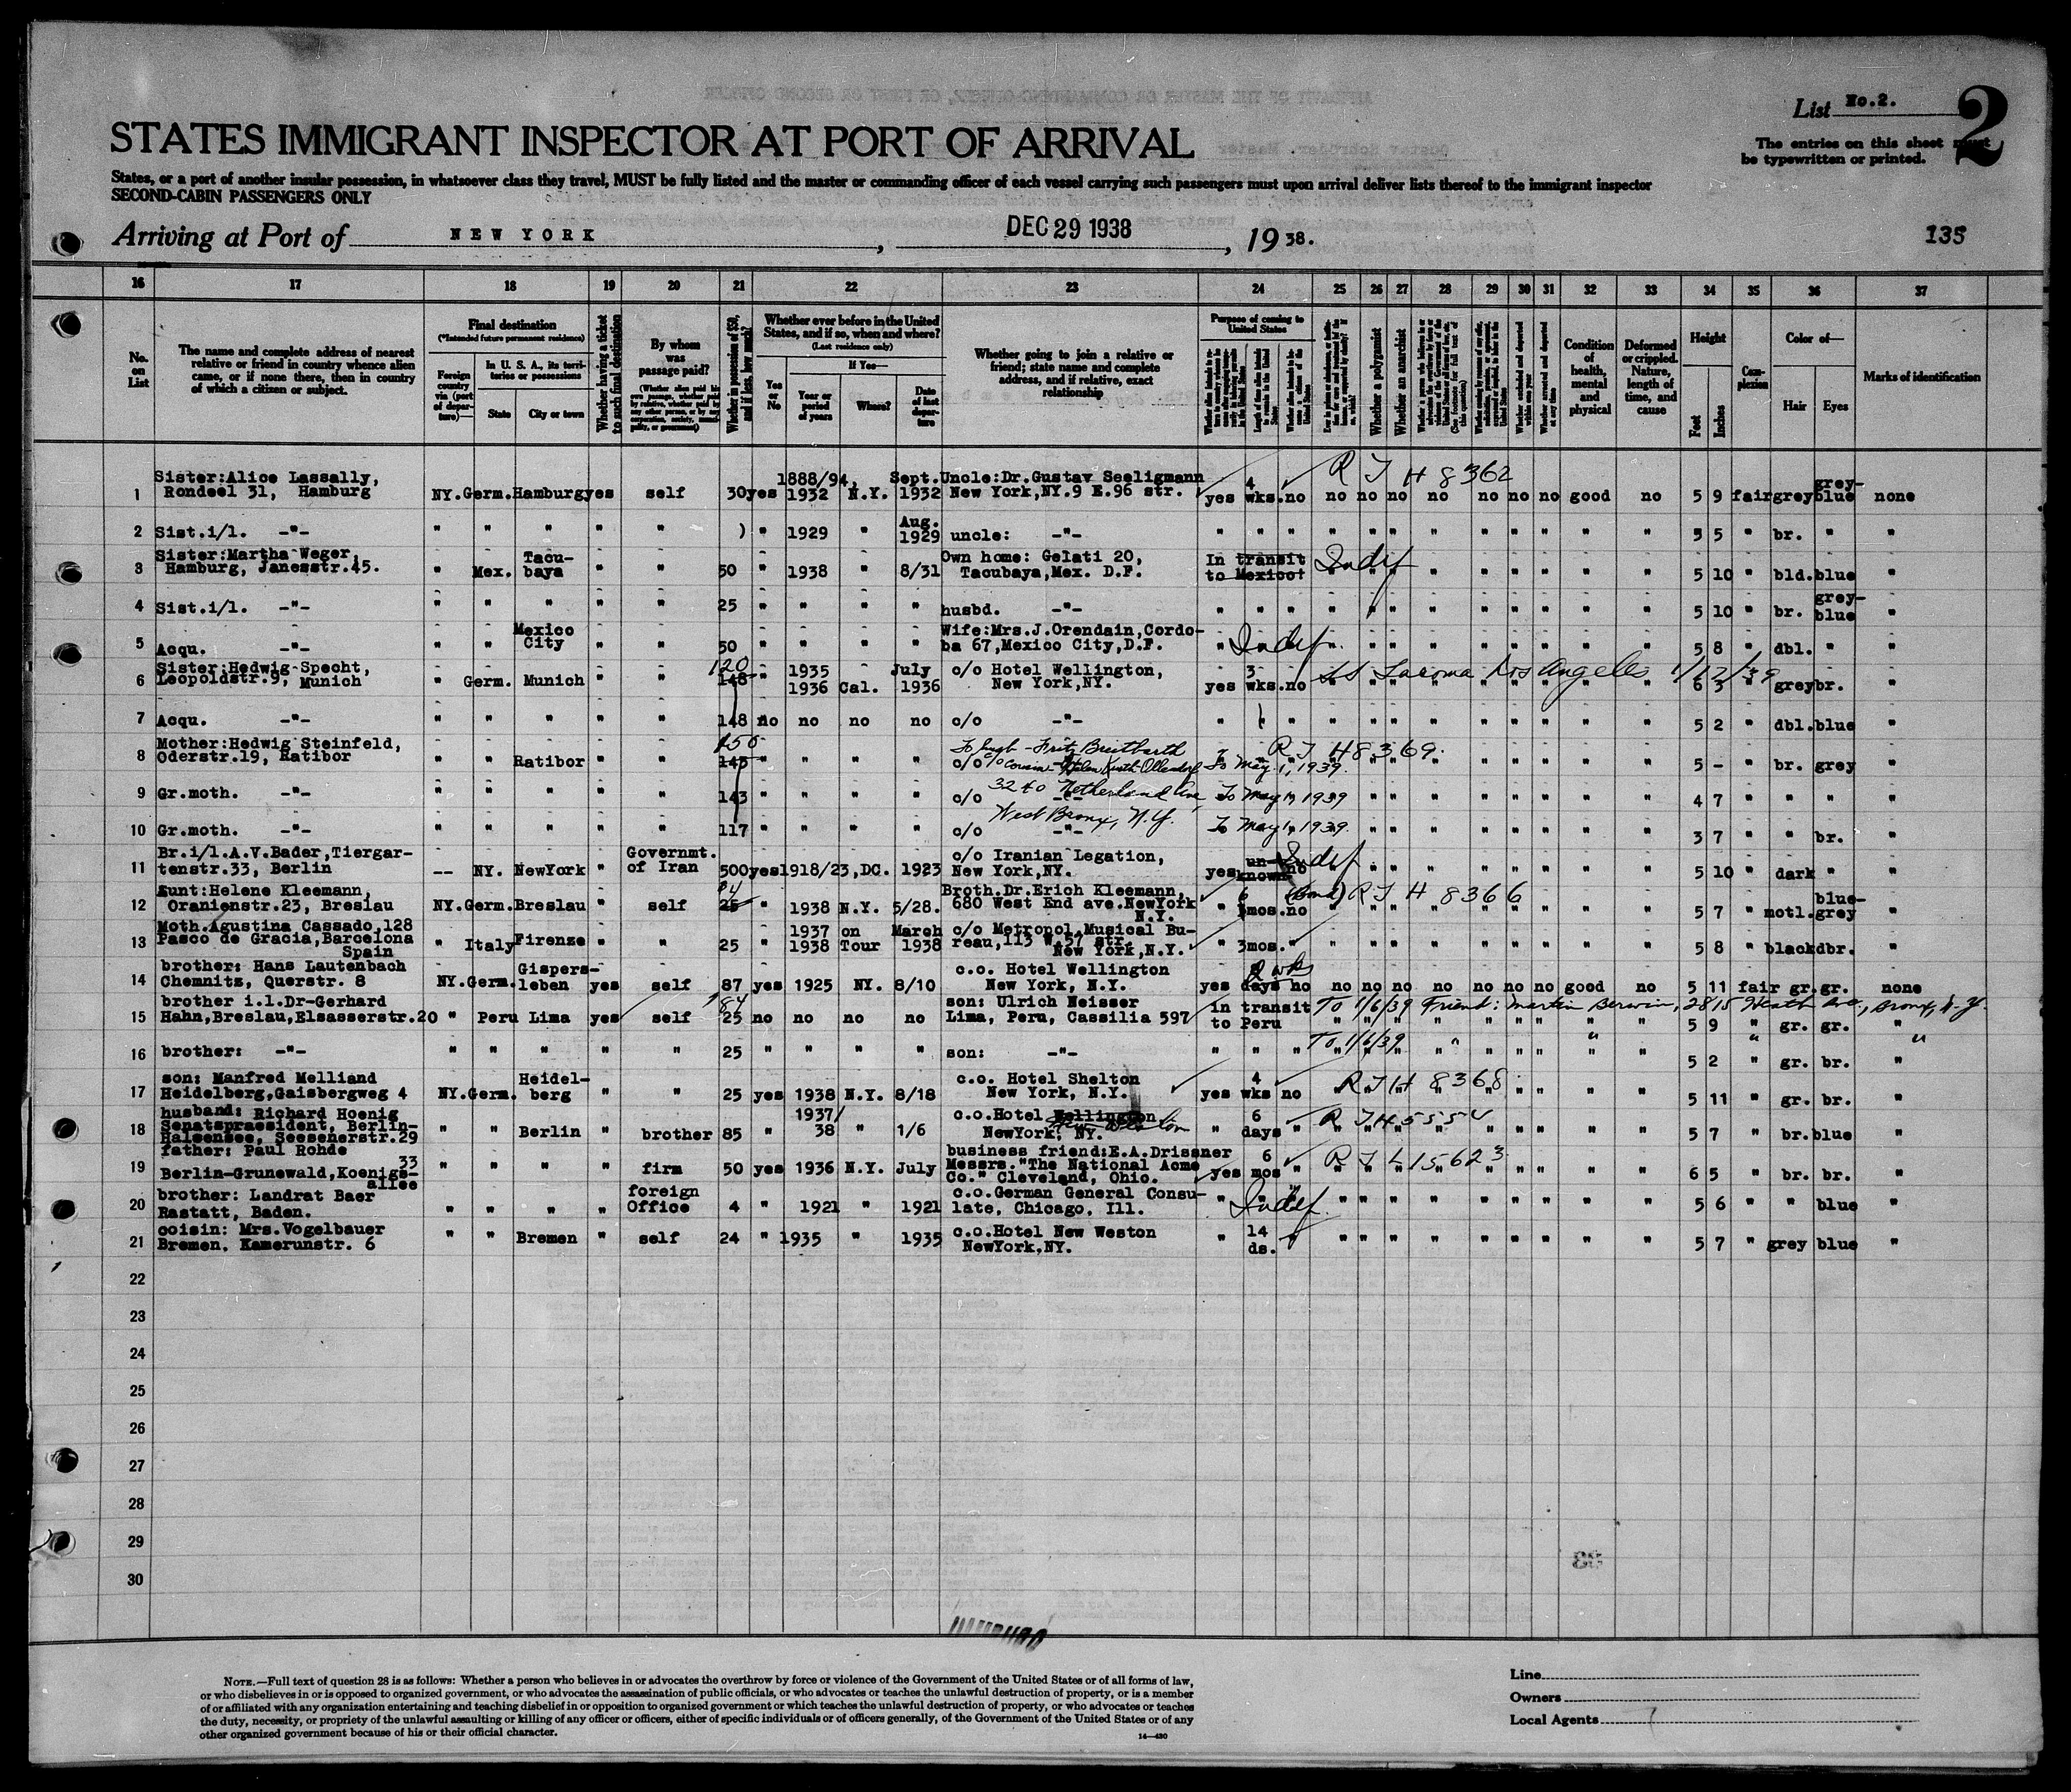 List No.2.
2
The entries on this sheet must
be typewritten or printed.
STATES IMMIGRANT INSPECTOR AT PORT OF ARRIVAL
States, or a port of another insular possession, in whatsoever class they travel, MUST be fully listed and the master or commanding officer of each vessel carrying such passengers must upon arrival deliver lists thereof to the immigrant inspector
SECOND-CABIN PASSENGERS ONLY
Arriving at Port of NEW YORK, DEC 29 1938, 19 38.
135
16 17 18 19 20 21 22 23 24 25 26 27 28 29 30 31 32 33 34 35 36 37
No. on List
The name and complete address of nearest relative or friend in country whence alien came, or if none there, then in country of which a citizen or subject.
Final destination
(*Intended future permanent residence)
Foreign country via (port of departure)—
In U. S. A., its territories or possessions
State
City or town
Whether having a ticket to such final destination
By whom was passage paid?
Whether in possession of $50, and if less, how much?
Whether ever before in the United States, and if so, when and where?
(Last residence only)
Yes or No
If Yes—
Year or period of years
Where?
Date of last departure
Whether going to join a relative or friend; state name and complete address, and if relative, exact relationship
Purpose of coming to United States
Whether a polygamist
Whether an anarchist
Condition of health, mental and physical
Deformed or crippled. Nature, length of time, and cause
Height
Feet
Inches
Complexion
Color of—
Hair
Eyes
Marks of identification
1 Sister:Alice Lassally, Rondeel 31, Hamburg NY. Germ. Hamburg yes self 30 yes 1888/94, 1932 N.Y. Sept. 1932 Uncle:Dr.Gustav Seeligmann New York,NY.9 E.96 str. yes 4 wks. no R T H 8362 no no no no no no no good no 5 9 fair grey grey-blue none
2 Sist.i/l. -"- " " " " " ) " 1929 " Aug. 1929 uncle: -"- " " " " " " " " " " " " 5 5 " br. " "
3 Sister:Martha Weger, Hamburg, Jänesstr.45. " Mex. Tacu-baya " " 50 " 1938 " 8/31 Own home: Gelati 20, Tacubaya,Mex. D.F. In transit to Mexico! Indef " " " " " " " " 5 10 " bld. blue "
4 Sist.i/l. -"- " " " " " 25 " " " " husbd. -"- " " " " " " " " " " " " 5 10 " br. grey-blue "
5 Acqu. -"- " " Mexico City " " 50 " " " " Wife:Mrs.J.Orendain,Cordo-ba 67,Mexico City,D.F. " Indef. " " " " " " " " " 5 8 " dbl. " "
6 Sister:Hedwig Specht, Leopoldstr.9, Munich " Germ. Munich " " 120 148 " 1935 1936 Cal. July 1936 c/o Hotel Wellington, New York,NY. yes 3 wks. no SS Tacoma Los Angeles 1/12/39 6 3 " grey br. "
7 Acqu. -"- " " " " " 148 no no no no c/o -"- " " " " " " " " " " " 5 2 " dbl. blue "
8 Mother:Hedwig Steinfeld, Oderstr.19, Ratibor " " Ratibor " " 150 143 " " " " c/o Fritz Breitbarth c/o cousin To May 1, 1939. R T H8369. 5 - " br. grey "
9 Gr.moth. -"- " " " " " 143 " " " " c/o 3240 Netherland Ave, To May 1, 1939 " " " " " " " " " 4 7 " " " "
10 Gr.moth. -"- " " " " " 117 " " " " c/o West Bronx, N.Y. To May 1, 1939. " " " " " " " " " 3 7 " " br. "
11 Br.i/l.A.V.Bader,Tiergar-tenstr.33, Berlin -- NY. NewYork " Governmt. of Iran 500 yes 1918/23, DC. 1923 c/o Iranian Legation, New York,NY. yes un-known no Indef " " " " " " " " " 5 10 " dark " "
12 Aunt:Helene Kleemann, Oranienstr.23, Breslau NY. Germ. Breslau " self 84 25 " 1938 N.Y. 5/28. Broth.Dr.Erich Kleemann, 680 West End ave.NewYork N.Y. " 6 mos. no (Bond) R T H 8366 5 7 " motl. blue-grey "
13 Moth.Agustina Cassado,128 Pasco de Gracia,Barcelona Spain " Italy Firenze " " 25 " 1937 1938 on Tour March 1938 c/o Metropol.Musical Bu-reau,113 W.57 str. New York,N.Y. " 3mos. " " " " " " " " " " 5 8 " black dbr. "
14 brother: Hans Lautenbach Chemnitz, Querstr. 8 NY. Germ. Gispers-leben yes self 87 yes 1925 NY. 8/10 c.o. Hotel Wellington New York, N.Y. yes 2 wks days no no no no no no no no good no 5 11 fair gr. gr. none
15 brother i.l.Dr-Gerhard Hahn,Breslau,Elsasserstr.20 " Peru Lima yes self 184 25 no no no no son: Ulrich Neisser Lima, Peru, Cassilia 597 in transit to Peru To 1/6/39 Friend: Martin Berwin, 2815 Heath Ave, Bronx, N.Y. 5 9 " gr. gr. "
16 brother: -"- " " " " " 25 " " " " son: -"- " " " To 1/6/39 " " " " " " 5 2 " gr. br. "
17 son: Manfred Melliand Heidelberg,Gaisbergweg 4 NY. Germ. Heidel-berg " " 25 yes 1938 N.Y. 8/18 c.o. Hotel Shelton New York, N.Y. yes 4 wks no R T H 8368 5 11 " gr. br. "
18 husband: Richard Hoenig Senatspraesident, Berlin-Halensee, Seesenerstr.29 " " Berlin " brother 85 " 1937/38 " 1/6 c.o.Hotel Wellington NewYork, NY. " 6 days " R T H 5 7 " br. blue "
19 father: Paul Rohde Berlin-Grunewald,Koenigs-allee 33 " " " " firm 50 yes 1936 N.Y. July business friend:E.A.Drissner Messrs."The National Acme Co." Cleveland, Ohio. yes 6 mos " R T L 15623 6 5 " br. br. "
20 brother: Landrat Baer Rastatt, Baden. " " " " foreign Office 4 " 1921 " 1921 c.o.German General Consu-late, Chicago, Ill. " Indef. " " " " " " " " " 5 6 " " blue "
21 coisin: Mrs.Vogelbauer Bremen, Kamerunstr. 6 " " Bremen " self 24 " 1935 " 1935 c.o.Hotel New Weston NewYork,NY. " 14 ds. " " " " " " " " " " 5 7 " grey blue "
22
23
24
25
26
27
28
29
30
NOTE.—Full text of question 28 is as follows: Whether a person who believes in or advocates the overthrow by force or violence of the Government of the United States or of all forms of law,
or who disbelieves in or is opposed to organized government, or who advocates the assassination of public officials, or who advocates or teaches the unlawful destruction of property, or is a member
of or affiliated with any organization entertaining and teaching disbelief in or opposition to organized government or which teaches the unlawful destruction of property, or who advocates or teaches
the duty, necessity, or propriety of the unlawful assaulting or killing of any officer or officers, either of specific individuals or of officers generally, of the Government of the United States or of any
other organized government because of his or their official character.
14—430
Line
Owners
Local Agents